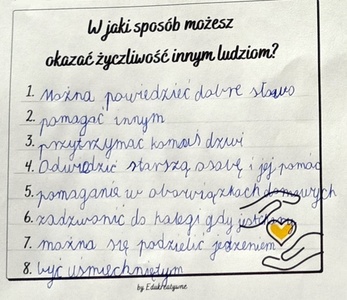 W jaki sposób możesz
okazać życzliwość innym ludziom?
1. można powiedzieć dobre słowo
2. pomagać innym
3. przytrzymać komuś drzwi
4. Odwiedzić starszą osobę i jej pomóc
5. pomaganie w obowiązkach domowych
6. zadzwonić do kolegi gdy jest
7. można się podzielić jedzeniem
8. być uśmiechniętym
by Edukreatywne